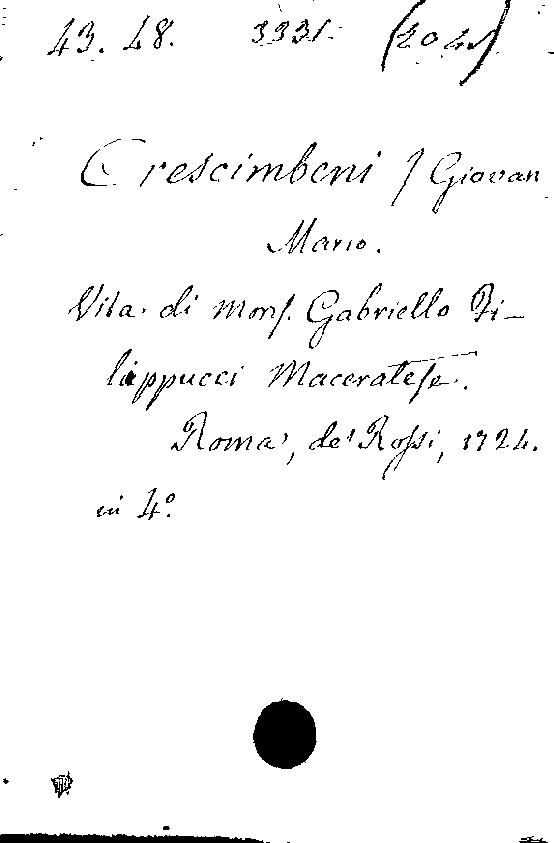 43. 48. 3331. (20 4
Crescimbeni / Giovan
Mario.
Vita di Mons. Gabriello Fi-
lippucci Maceratese.
Roma, de' Rossi, 1724.
in 4º.